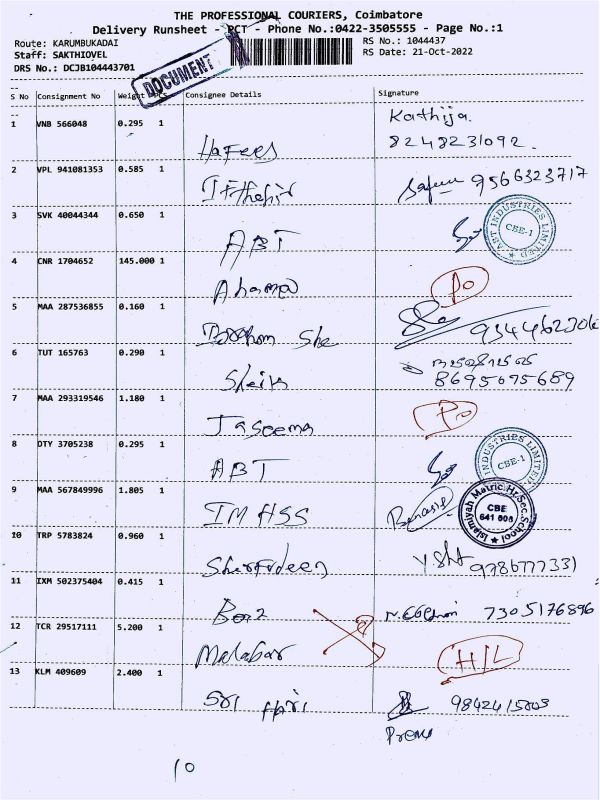 THE PROFESSIONAL COURIERS, Coimbatore
Delivery Runsheet - PCT - Phone No.:0422-3505555 - Page No.:1
Route: KARUMBUKADAI
RS No.: 1044437
Staff: SAKTHIOVEL
RS Date: 21-Oct-2022
DRS No.: DCJB104443701
DOCUMENT
S No Consignment No Weight PCS Consignee Details Signature
1 VNB 566048 0.295 1 Hafees Kathija.
8248231092.
2 VPL 941081353 0.585 1 9566323717
3 SVK 40044344 0.650 1 ABT ABT INDUSTRIES LIMITED CBE-1
4 CNR 1704652 145.000 1 Ahamed Po
5 MAA 287536855 0.160 1 She
6 TUT 165763 0.290 1 Sheik
8695675689
7 MAA 293319546 1.180 1 Jaseema Po
8 DTY 3705238 0.295 1 ABT INDUSTRIES LIMITED CBE-1
9 MAA 567849996 1.805 1 IMHSS Islamiyah Matric.Hr.Sec.School CBE 641 008
10 TRP 5783824 0.960 1 Sharfudeen 9786777331
11 IXM 502375404 0.415 1 7305176896
12 TCR 29517111 5.200 1 Malabar H/L
13 KLM 409609 2.400 1 Sri Hari 9842415803
Prema
10